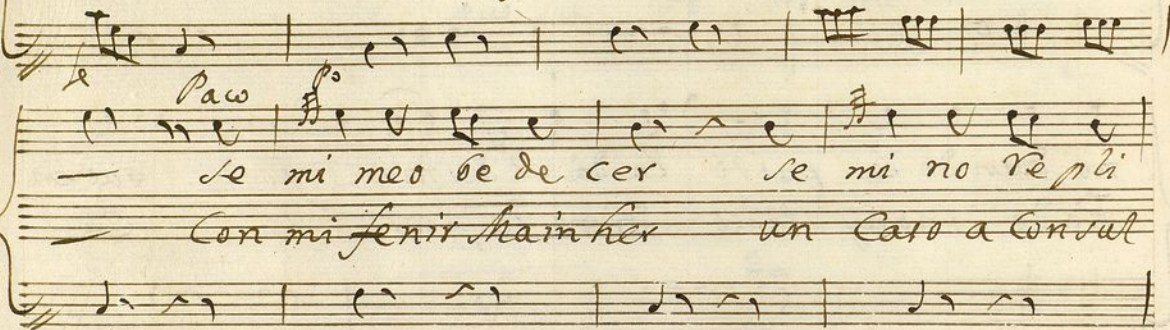 fe
Paco po
se mi meo be de cer se mi no re pli
Con mi fenir Mainher un Caso a Consul